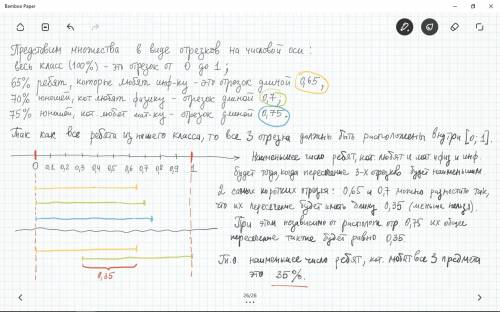 Bamboo Paper
Представим множества в виде отрезков на числовой оси :
весь класс (100%) - это отрезок от 0 до 1 ;
65% ребят, которые любят инф-ку - это отрезок длиной 0,65,
70% юношей, кот. любят физику - отрезок длиной 0,7;
75% юношей, кот. любят мат-ку - отрезок длиной 0,75.
Так как все ребята из нашего класса, то все 3 отрезка должны быть расположены внутри [0; 1].
0 0.1 0.2 0.3 0.4 0.5 0.6 0.7 0.8 0.9 1
Наименьшее число ребят, кот. любят и мат. и физ. и инф.
будет тогда, когда пересечение 3-х отрезков будет наименьшим
2 самых коротких отрезка : 0,65 и 0,7 можно разместить так,
что их пересечение будет иметь длину 0,35 (меньше нельзя)
При этом независимо от располож. отр. 0,75 их общее
пересечение также будет равно 0,35
0,35
Т.о. наименьшее число ребят, кот. любят все 3 предмета
это 35%.
26/26